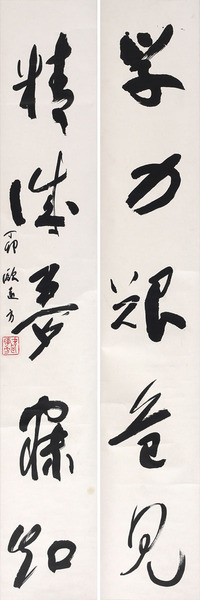 学力艰危见
精诚梦寐知
丁卯 欧远方